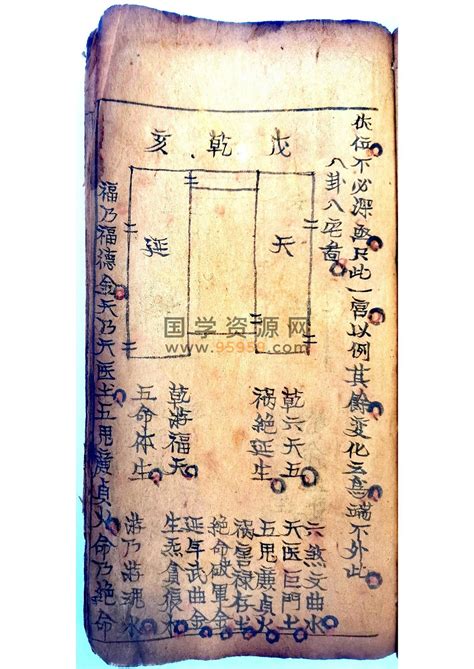 伏位不必深只此一宮以例其餘變化端不外此
八卦八宅者
戌乾亥
天
延
乾六天五
禍絕延生
乾游福天
五命体生
六煞文曲水
天医巨門土
五鬼廉貞火
禍害禄存土
絕命破軍金
延年武曲金
生炁貪狼木
游乃游魂水
福乃福德金天乃天医土五鬼廉貞火命乃絕命
国学资源网